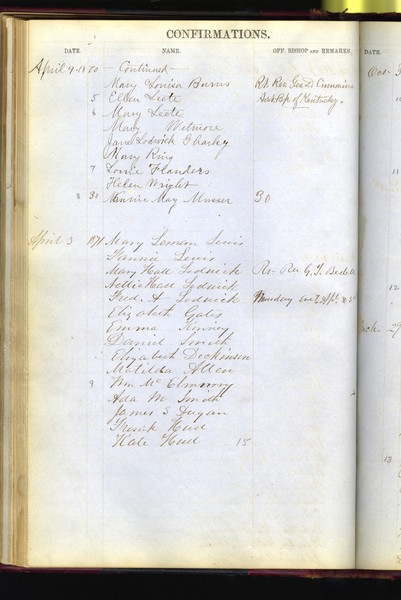 CONFIRMATIONS.
DATE. NAME. OFF. BISHOP AND REMARKS. DATE.
April 9. 1870 — Continued —
Mary Louisa Burns Rt. Rev Geo. D. Cummins
5 Ellen Leete Asst Bp. of Kentucky.
6 Mary Leete
Mary Wetmore
Jane Lodwick
Mary Ring
7 Lonie Flanders
Helen Wright
8 30 May Musser 30
April 3 1871 Mary Leman Lewis
Fannie Lewis
Mary Hall Lodwick Rt. Rev G. T. Bedell
Nellie Hall Lodwick
Fred. A. Lodwick Monday
Elizabeth Gates
Emma Kinney
Daniel Smith
Elizabeth Deckinson
Matilda Allen
9 Wm Mc
Ada M Smith
James S Dugan
Hud
Kate Hud 15
11
12
13